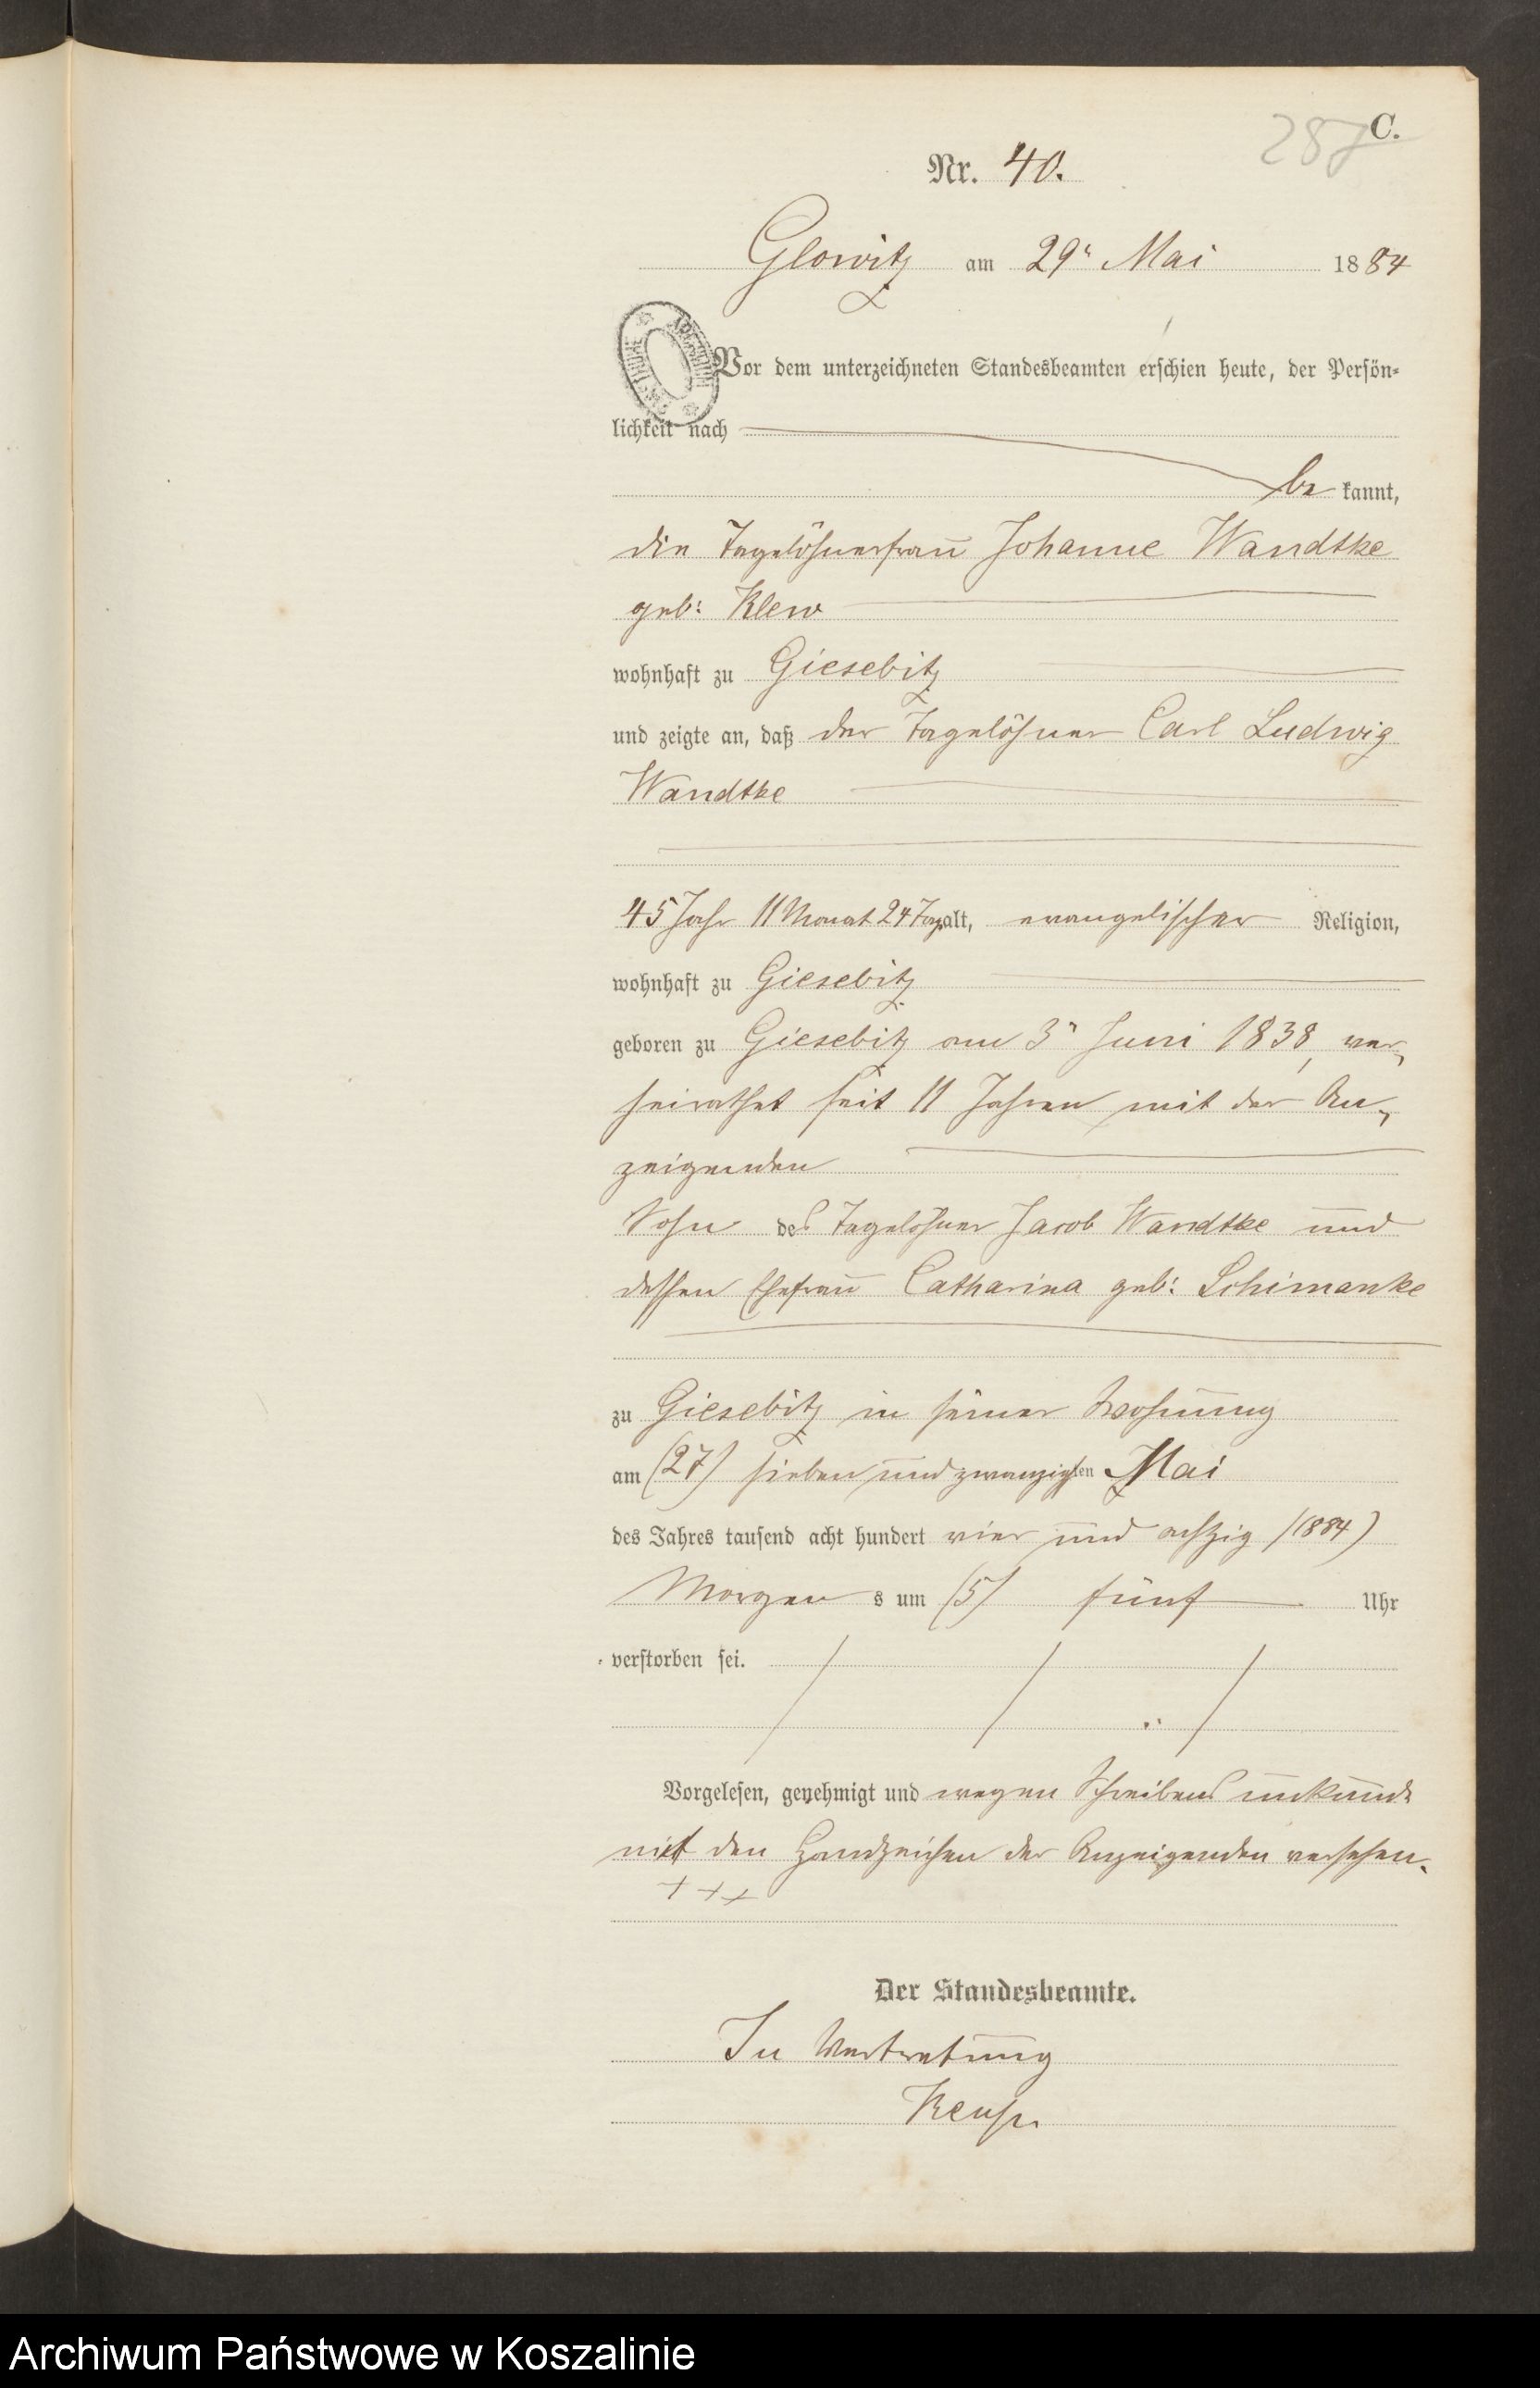 C.
287
Nr. 40.
Glowitz am 29ⁿ Mai 1884
Vor dem unterzeichneten Standesbeamten erschien heute, der Persön-
lichkeit nach
be kannt,
die Tagelöhnerfrau Johanne Wandtke
geb: Klew
wohnhaft zu Giesebitz
und zeigte an, daß der Tagelöhner Carl Ludwig
Wandtke
45 Jahr 11 Monat 24 Tage alt, evangelischer Religion,
wohnhaft zu Giesebitz
geboren zu Giesebitz am 3ⁿ Juni 1838, ver-
heirathet seit 11 Jahren mit der An-
zeigenden
Sohn des Tagelöhner Jacob Wandtke und
dessen Ehefrau Catharina geb: Schimanke
zu Giesebitz in seiner Wohnung
am (27) sieben und zwanzigsten Mai
des Jahres tausend acht hundert vier und achtzig (1884)
Morgen s um (5) fünf Uhr
verstorben sei.
Vorgelesen, genehmigt und wegen Schreibens unkunde
mit den Handzeichen der Anzeigenden versehen.
+++
Der Standesbeamte.
In Vertretung
Archiwum Państwowe w Koszalinie